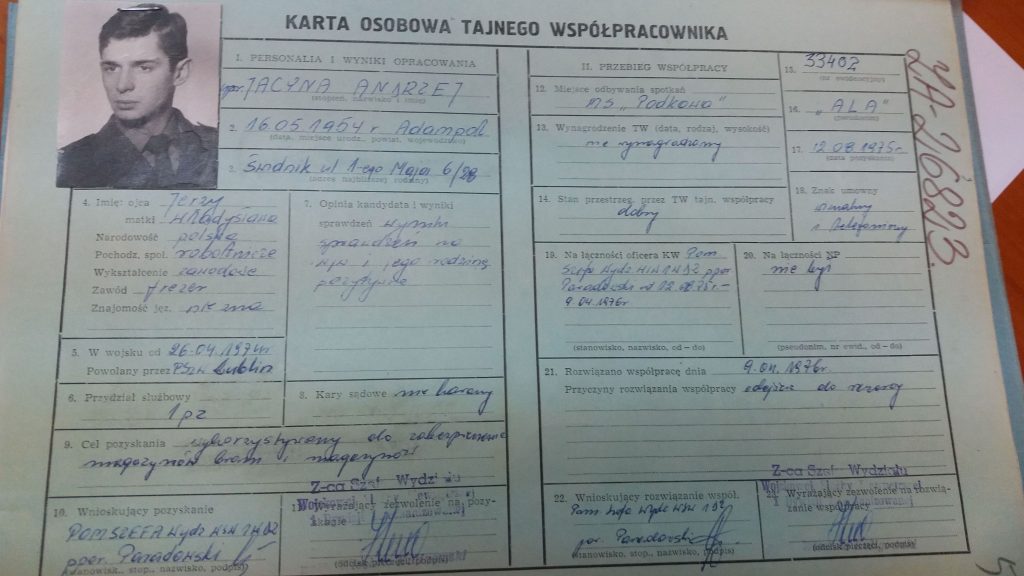 KARTA OSOBOWA TAJNEGO WSPÓŁPRACOWNIKA
I. PERSONALIA I WYNIKI OPRACOWANIA
JACYNA ANDRZEJ
(stopień, nazwisko i imię)
2. 16.05.1954 r. Adampol
(data, miejsce urodz., powiat, województwo)
3. Świdnik ul 1-ego Maja 6/28
(adres najbliższej rodziny)
4. Imię: ojca Jerzy
matki Władysława
Narodowość polska
Pochodz. społ. robotnicze
Wykształcenie zawodowe
Zawód frezer
Znajomość jęz. nie zna
5. W wojsku od 26.04.1974r
Powołany przez Lublin
6. Przydział służbowy
1 pz
7. Opinia kandydata i wyniki
sprawdzeń wyniki
sprawdzeń na
i jego rodzinę
pozytywne
8. Kary sądowe nie karany
9. Cel pozyskania wykorzystywany do zabezpieczenia
magazynów broni i
Z-ca Szef Wydziału
10. Wnioskujący pozyskanie
POM SZEFA Wydz WSW
ppor. Paradowski
(stanowisk., stop., nazwisko, podpis)
Wyrażający zezwolenie na pozy-
skanie
(odcisk pieczęci, podpis)
II. PRZEBIEG WSPÓŁPRACY
12. Miejsce odbywania spotkań
MS „Podkowa"
13. Wynagrodzenie TW (data, rodzaj, wysokość)
nie wynagradzany
14. Stan przestrzeg. przez TW tajn. współpracy
dobry
15. 33402
(nr ewidencyjny)
16. „ALA"
(pseudonim)
17. 12.08.1975r
(data pozyskania)
18. Znak umowny
19. Na łączności oficera KW Pom
Szefa Wydz ppor
Paradowski od 12.08.75r -
9.04.1976r
(stanowisko, nazwisko, od – do)
20. Na łączności NP
nie był
(pseudonim, nr ewid., od – do)
21. Rozwiązano współpracę dnia 9.04.1976r.
Przyczyny rozwiązania współpracy odejście do rezerwy
Z-ca Szef Wydziału
22. Wnioskujący rozwiązanie współ.
Pom Szefa Wydz WSW
por. Paradowski
(stanowisko, stop., nazwisko, podpis)
23. Wyrażający zezwolenie na rozwią-
zanie współpracy
(odcisk pieczęci, podpis)
5